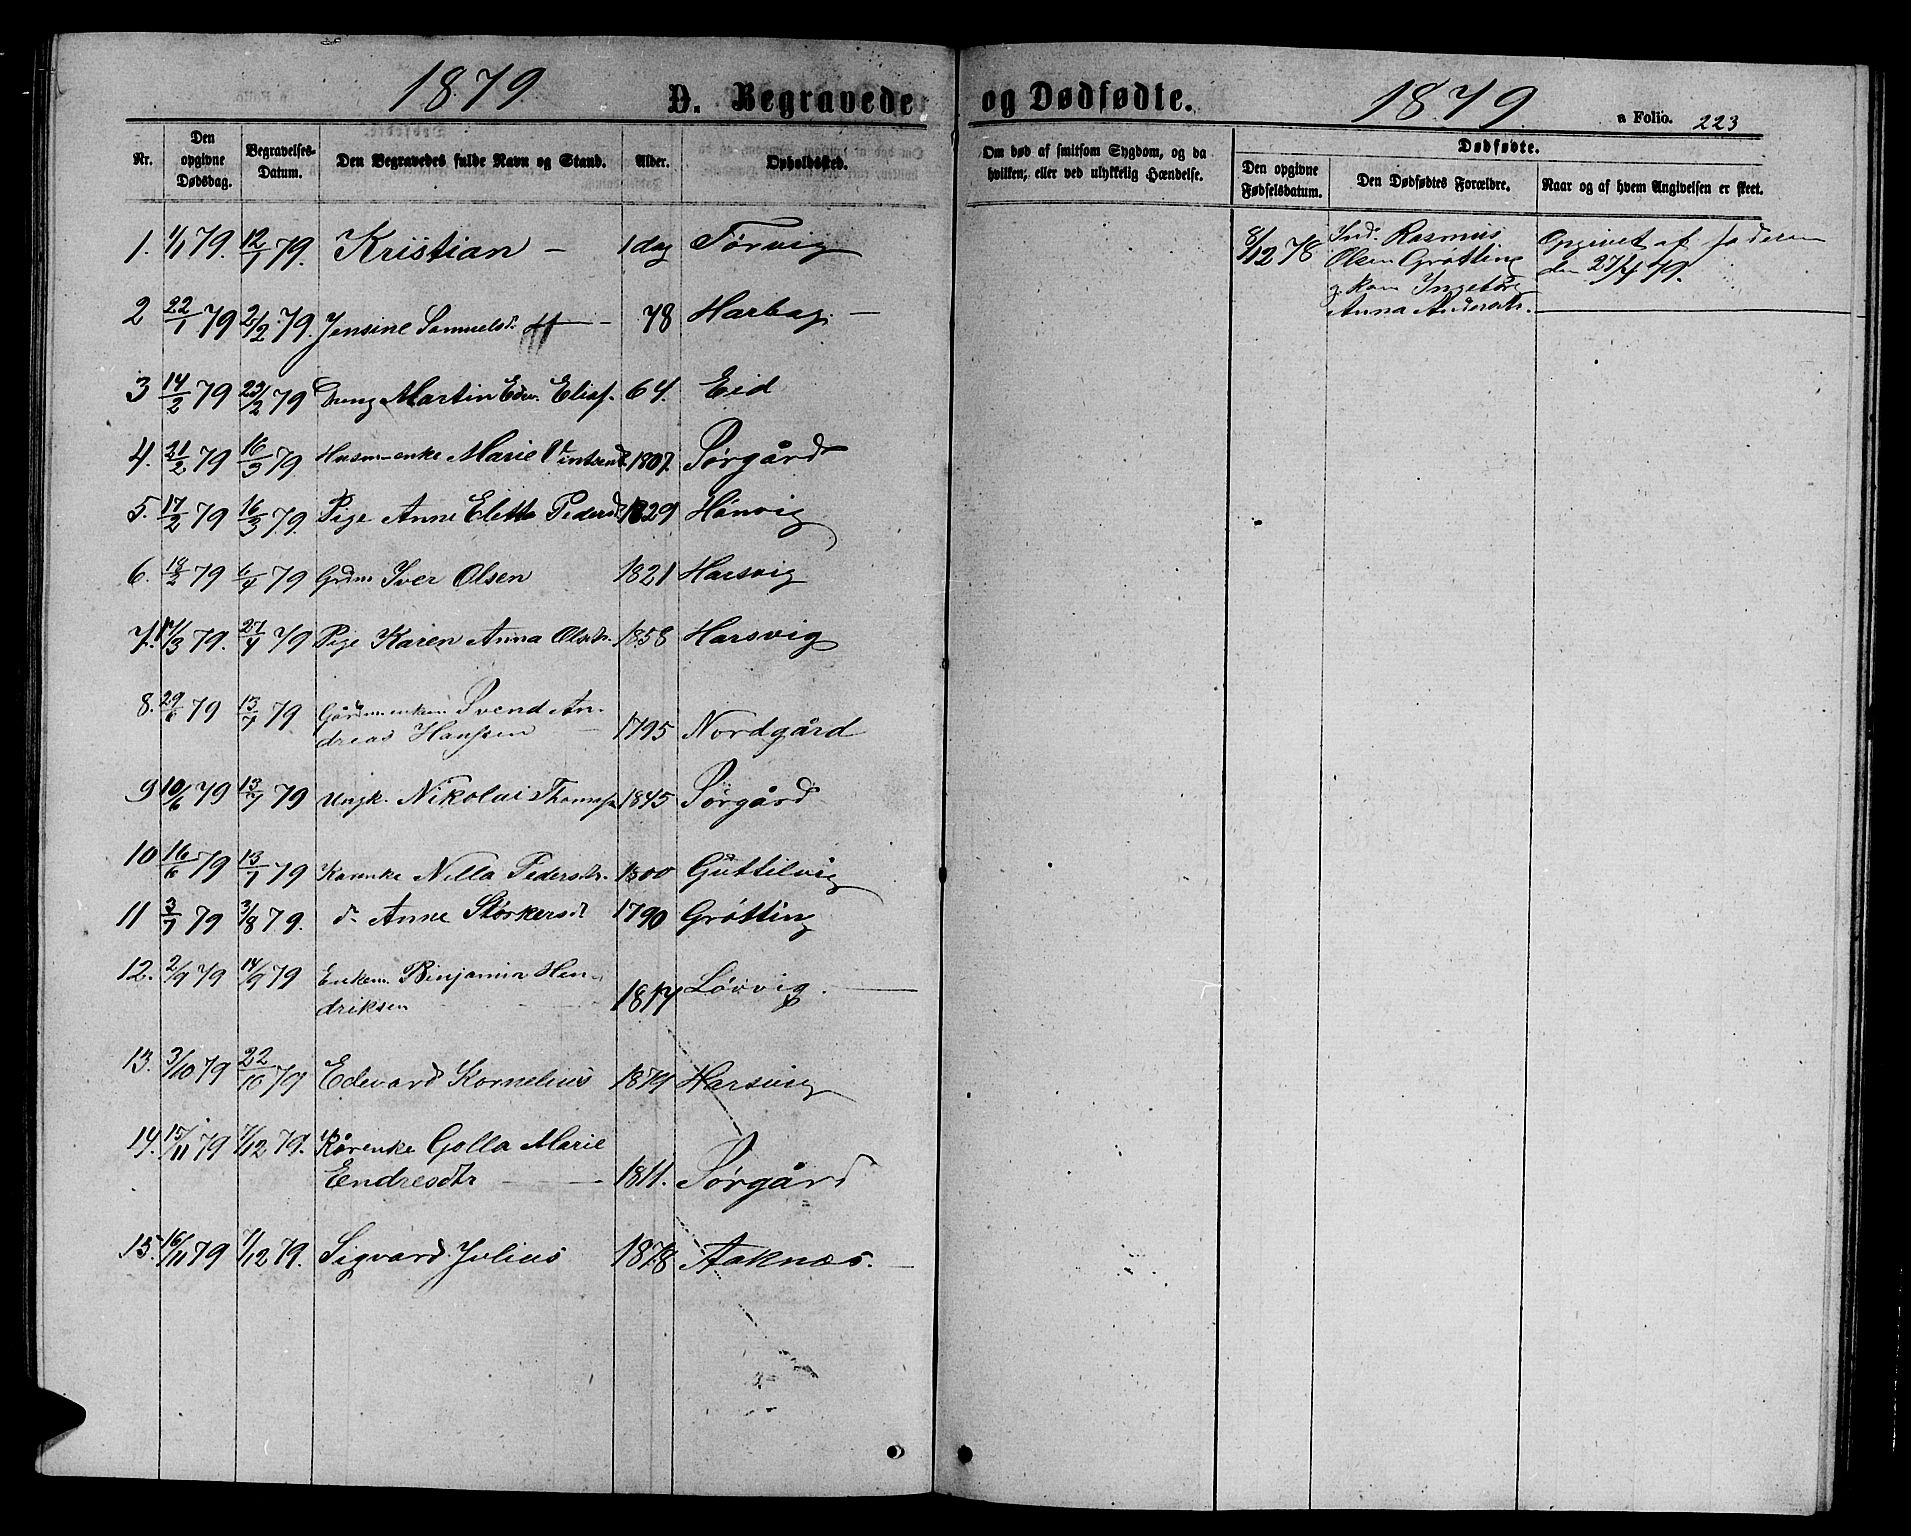 1879 D. Begravede og Dødfødte. 1879. a Folio. 223
Nr. Den opgivne Dødsdag. Begravelses-Datum. Den Begravedes fulde Navn og Stand. Alder. Opholdssted. Om død af smitsom Sygdom, og da hvilken; eller ved ulykkelig Hændelse. Dødfødte. Den opgivne Fødselsdatum. Den Dødfødtes Forældre. Naar og af hvem Angivelsen er skeet.
1. 1/1 79. 12/1 79. Kristian – 1 dag Tørvig
2 22/1 79 2/2 79. Jensine Samuelsd. 78 Harbag. –
3 14/2 79 23/2 79 Martin Edv. Elias. 64. Eid
4. 21/2 79 16/3 79 Husm-enke Marie 1807. Sørgård
5. 17/2 79 16/3 79. Pige Anne Pedersd. 1829 Hønvig
6. 18/2 79 6/4 79 Grdm Iver Olsen 1821 Harsvig
7. 11/3 79. 27/4 79 Pige Karen Anna Olsdtr. 1858 Harsvig
8. 29/6 79 13/7 79 Svend An-
dreas Hansen – 1795 Nordgård
9 10/6 79 13/7 79 Ungk. Nikolai Thomas 1845 Sørgård
10 16/6 79 13/7 79 Kårenke Nilla Pedersdtr. 1800 Guttelvig
11 3/7 79 3/8 79. d. Anne Størkersd 1790 Grøtting
12. 2/9 79 14/9 79 Enkem. Binjamin Hen-
driksen Løvvig.
13. 3/10 79 22/10 79 Edvard Kornelius 1879 Harsvig
14. 15/11 79 7/12 79. Kårenke Golla Marie
Endresdtr 1811. Sørgård
15. 16/11 79 7/12 79. Sigvard Julius 1878 Aaknæs.
8/12 78 Ind. Rasmus
Olsen Grøtting
og Kone Ingeborg
Anna Andersdtr.
Opgivet af Faderen
den 27/4 79.